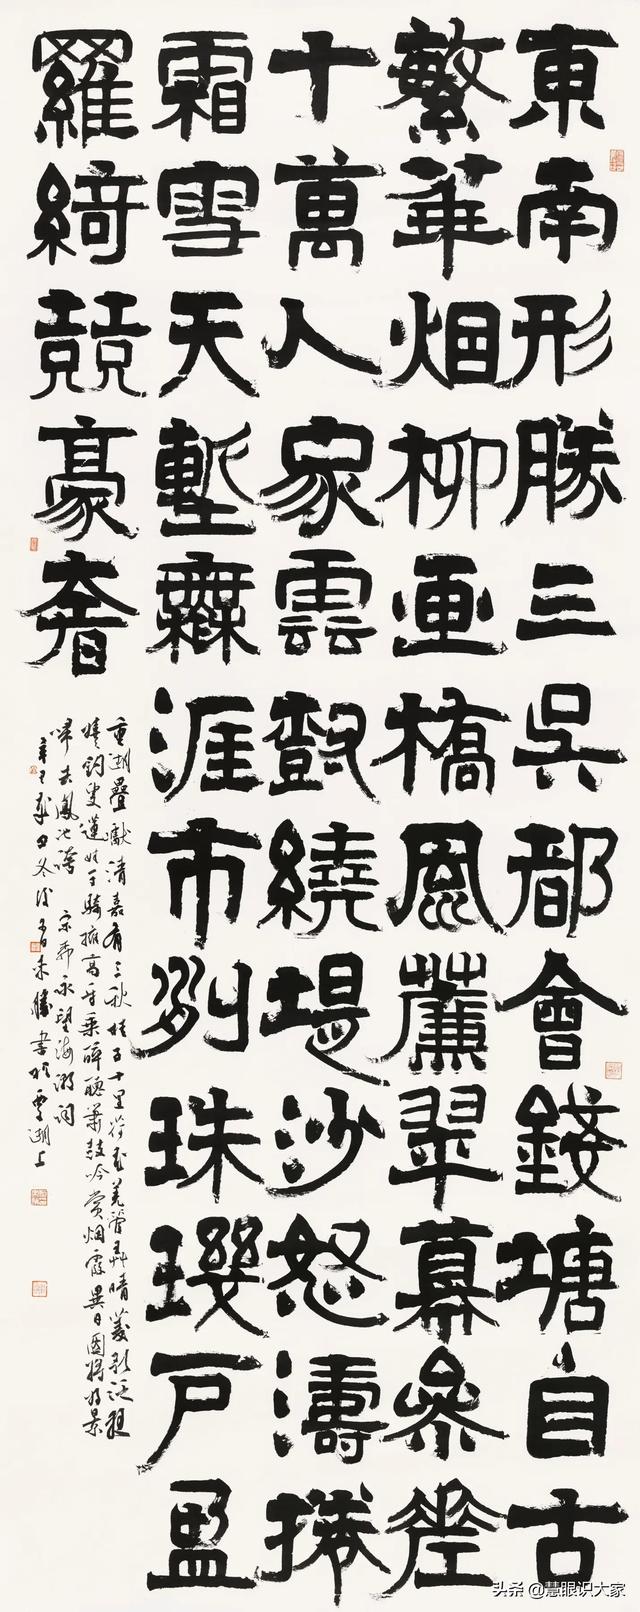 東南形勝三吳都會錢塘自古
繁華烟柳画橋風簾翠幕參差
十萬人家雲樹繞堤沙怒濤捲
霜雪天塹無涯市列珠璣戶盈
羅綺競豪奢
重湖疊巘清嘉有三秋桂子十里荷花羌管弄晴菱歌泛夜
嬉釣叟蓮娃千騎擁高牙乘醉聽簫鼓吟賞烟霞異日圖將好景
歸去鳳池誇 宋柳永望海潮詞
辛丑歲冬書於湖上
头条 @慧眼识大家